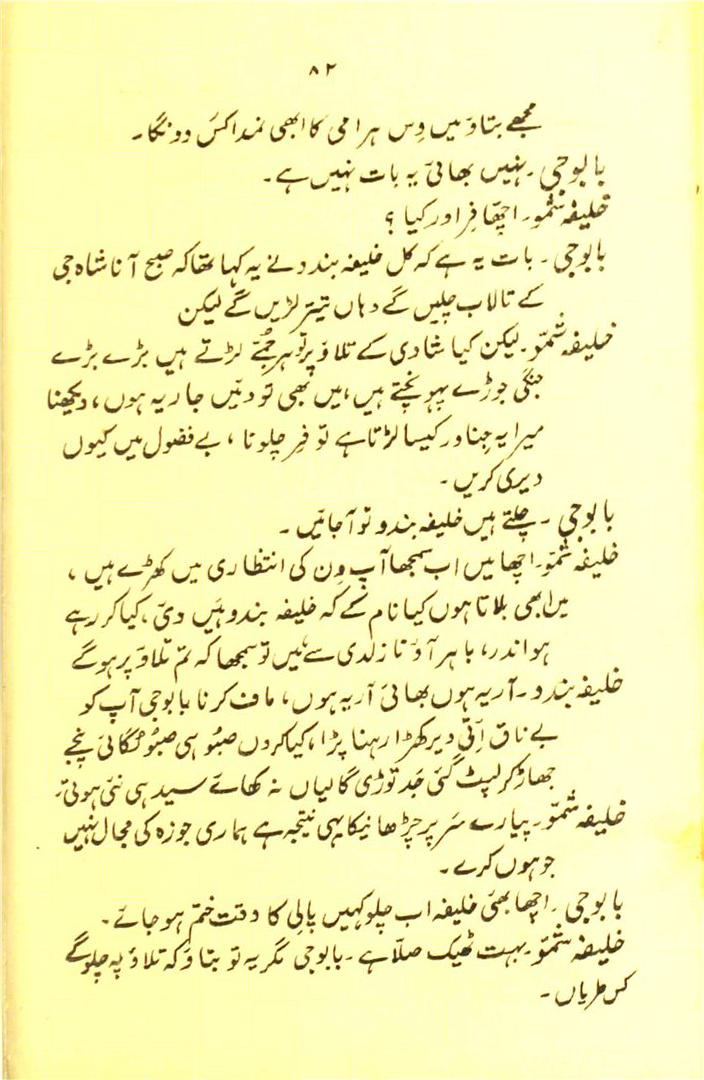 ۸۲
مجھے بتاوٓ میں دِس ہرامی کا ابھی نمدا کسَ دونگا۔
بابوجی ۔ نہیں بھائی یہ بات نہیں ہے۔
خلیفہ شمّو۔ اچھا فِر اور کیا ؟
بابوجی ۔ بات یہ ہے کہ کل خلیفہ بندو نے یہ کہا تھا کہ صبح آنا شاہ جی
کے تالاب چلیں گے وہاں تیتر لڑیں گے لیکن
خلیفہ شمّو۔ لیکن کیا شادی کے تلاوٓ پر تو ہر جُمّے لڑتے ہیں بڑے بڑے
جنگی جوڑے پہونچتے ہیں، میں بھی تو وئیں جاریہ ہوں، دیکھنا
میرا یہ جِناور کیسا لڑتا ہے تو فِر چلونا ، بے فضول میں کیوں
دیری کریں ۔
بابوجی ۔ چلتے ہیں خلیفہ بندو تو آجائیں ۔
خلیفہ شمّو۔ اچھا میں اب سمجھا آپ وِن کی انتظاری میں کھڑے ہیں ،
میں ابھی بلاتا ہوں کیا نام کے کہ خلیفہ بندو ہَیں دیّ ، کیا کر رہے
ہو اندر، باہر آوٓ نا زلدی سے مَیں تو سمجھا کہ تم تلاوٓ پر ہوگے
خلیفہ بندو ۔ آریہ ہوں بھائی آریہ ہوں، ماف کرنا بابوجی آپ کو
بے ناق اِتّی دیر کھڑا رہنا پڑا ، کیا کروں صبُو ہی صبُو لگائی پنجے
جھاڑ کر لپٹ گئی جَد توڑی گالیاں نہ کھائے سیدہی نئی ہوتی۔
خلیفہ شمّو۔ پیارے سَر پر چڑھانیکا یہی نتیجہ ہے ہماری جوزہ کی مجال نہیں
جو ہوں کرے ۔
بابوجی ۔ اچھا بھئی خلیفہ اب چلو کہیں پالی کا وقت ختم ہو جائے ۔
خلیفہ شمّو۔ بہت ٹھیک صلّا ہے ۔ بابوجی مگر یہ تو بتاوٓ کہ تلاوٓ پہ چلو گے
کس طریاں ۔